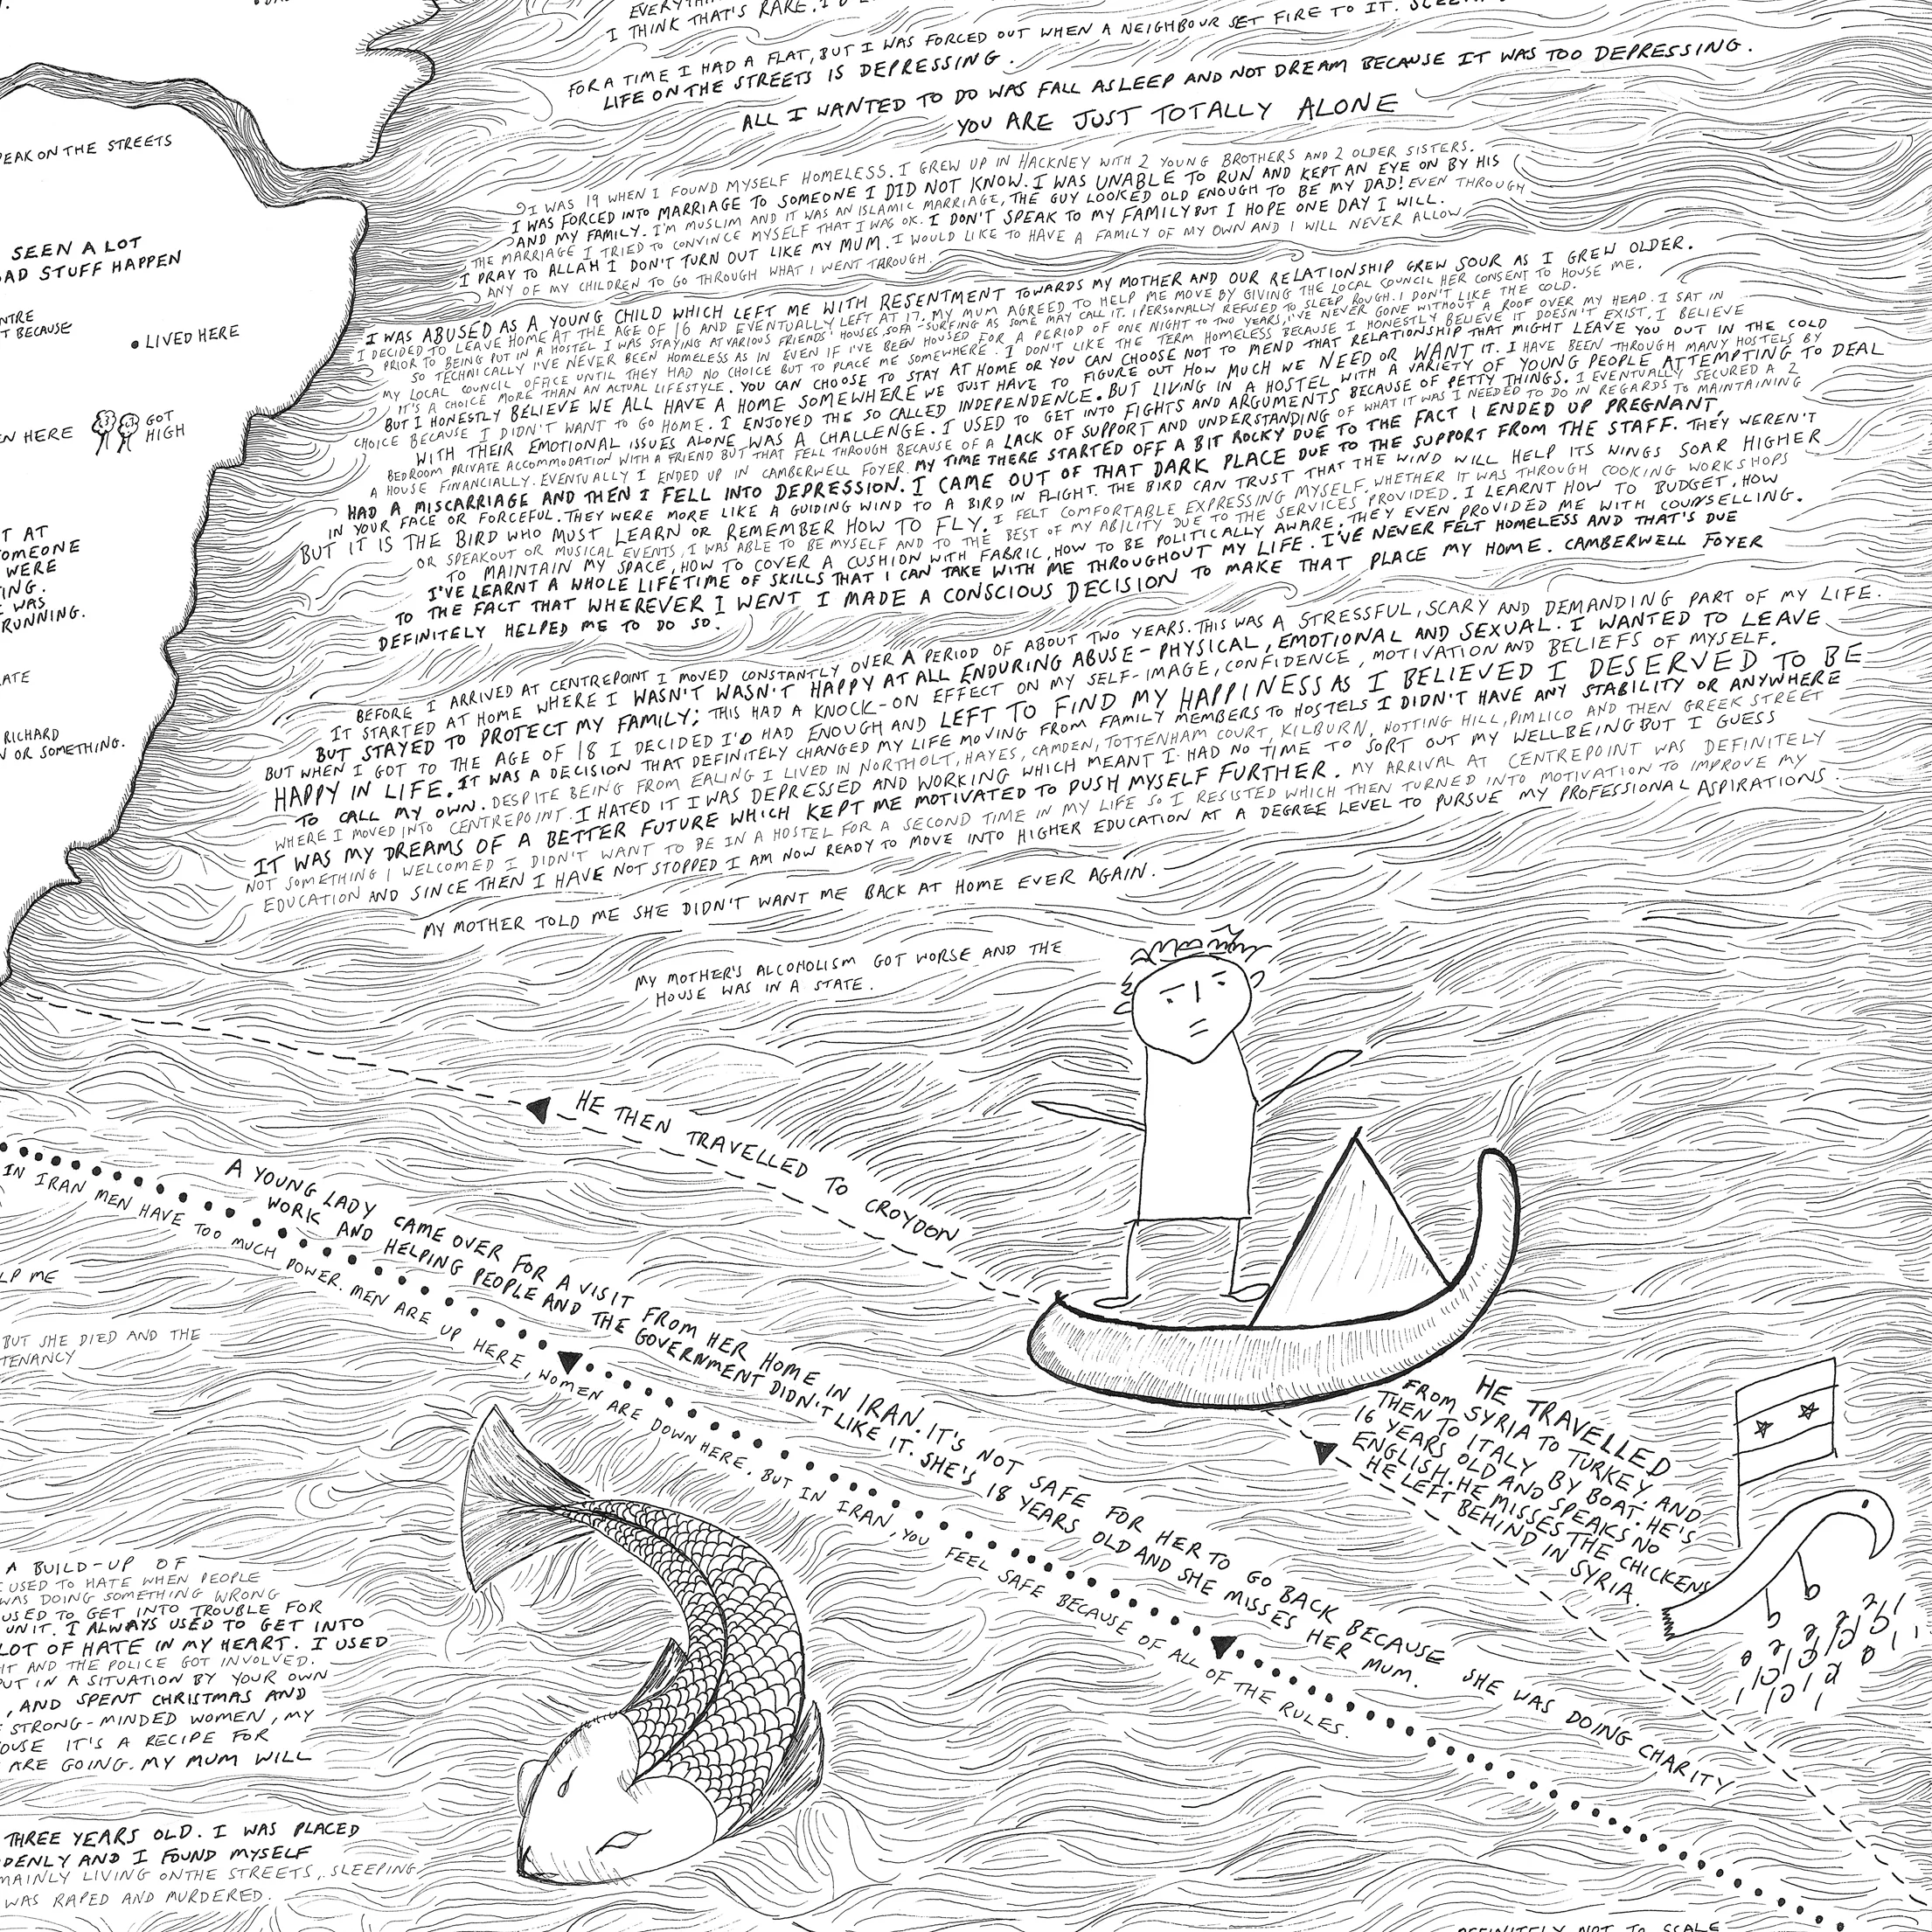 EVERYTHIN
I THINK THAT'S RARE. I'D
FOR A TIME I HAD A FLAT, BUT I WAS FORCED OUT WHEN A NEIGHBOUR SET FIRE TO IT.
LIFE ON THE STREETS IS DEPRESSING.
ALL I WANTED TO DO WAS FALL ASLEEP AND NOT DREAM BECAUSE IT WAS TOO DEPRESSING.
YOU ARE JUST TOTALLY ALONE
I WAS 19 WHEN I FOUND MYSELF HOMELESS. I GREW UP IN HACKNEY WITH 2 YOUNG BROTHERS AND 2 OLDER SISTERS.
I WAS FORCED INTO MARRIAGE TO SOMEONE I DID NOT KNOW. I WAS UNABLE TO RUN AND KEPT AN EYE ON BY HIS
AND MY FAMILY. I'M MUSLIM AND IT WAS AN ISLAMIC MARRIAGE, THE GUY LOOKED OLD ENOUGH TO BE MY DAD! EVEN THROUGH
THE MARRIAGE I TRIED TO CONVINCE MYSELF THAT I WAS OK. I DON'T SPEAK TO MY FAMILY BUT I HOPE ONE DAY I WILL.
I PRAY TO ALLAH I DON'T TURN OUT LIKE MY MUM. I WOULD LIKE TO HAVE A FAMILY OF MY OWN AND I WILL NEVER ALLOW
ANY OF MY CHILDREN TO GO THROUGH WHAT I WENT THROUGH.
I WAS ABUSED AS A YOUNG CHILD WHICH LEFT ME WITH RESENTMENT TOWARDS MY MOTHER AND OUR RELATIONSHIP GREW SOUR AS I GREW OLDER.
I DECIDED TO LEAVE HOME AT THE AGE OF 16 AND EVENTUALLY LEFT AT 17. MY MUM AGREED TO HELP ME MOVE BY GIVING THE LOCAL COUNCIL HER CONSENT TO HOUSE ME.
PRIOR TO BEING PUT IN A HOSTEL I WAS STAYING AT VARIOUS FRIENDS' HOUSES, SOFA-SURFING AS SOME MAY CALL IT. I PERSONALLY REFUSED TO SLEEP ROUGH. I DON'T LIKE THE COLD.
SO TECHNICALLY I'VE NEVER BEEN HOMELESS AS IN EVEN IF I'VE BEEN HOUSED FOR A PERIOD OF ONE NIGHT TO TWO YEARS, I'VE NEVER GONE WITHOUT A ROOF OVER MY HEAD. I SAT IN
MY LOCAL COUNCIL OFFICE UNTIL THEY HAD NO CHOICE BUT TO PLACE ME SOMEWHERE. I DON'T LIKE THE TERM HOMELESS BECAUSE I HONESTLY BELIEVE IT DOESN'T EXIST. I BELIEVE
IT'S A CHOICE MORE THAN AN ACTUAL LIFESTYLE. YOU CAN CHOOSE TO STAY AT HOME OR YOU CAN CHOOSE NOT TO MEND THAT RELATIONSHIP THAT MIGHT LEAVE YOU OUT IN THE COLD
BUT I HONESTLY BELIEVE WE ALL HAVE A HOME SOMEWHERE WE JUST HAVE TO FIGURE OUT HOW MUCH WE NEED OR WANT IT. I HAVE BEEN THROUGH MANY HOSTELS BY
CHOICE BECAUSE I DIDN'T WANT TO GO HOME. I ENJOYED THE SO CALLED INDEPENDENCE. BUT LIVING IN A HOSTEL WITH A VARIETY OF YOUNG PEOPLE ATTEMPTING TO DEAL
WITH THEIR EMOTIONAL ISSUES ALONE WAS A CHALLENGE. I USED TO GET INTO FIGHTS AND ARGUMENTS BECAUSE OF PETTY THINGS. I EVENTUALLY SECURED A 2
BEDROOM PRIVATE ACCOMMODATION WITH A FRIEND BUT THAT FELL THROUGH BECAUSE OF A LACK OF SUPPORT AND UNDERSTANDING OF WHAT IT WAS I NEEDED TO DO IN REGARDS TO MAINTAINING
A HOUSE FINANCIALLY. EVENTUALLY I ENDED UP IN CAMBERWELL FOYER. MY TIME THERE STARTED OFF A BIT ROCKY DUE TO THE FACT I ENDED UP PREGNANT,
HAD A MISCARRIAGE AND THEN I FELL INTO DEPRESSION. I CAME OUT OF THAT DARK PLACE DUE TO THE SUPPORT FROM THE STAFF. THEY WEREN'T
IN YOUR FACE OR FORCEFUL. THEY WERE MORE LIKE A GUIDING WIND TO A BIRD IN FLIGHT. THE BIRD CAN TRUST THAT THE WIND WILL HELP ITS WINGS SOAR HIGHER
BUT IT IS THE BIRD WHO MUST LEARN OR REMEMBER HOW TO FLY. I FELT COMFORTABLE EXPRESSING MYSELF. WHETHER IT WAS THROUGH COOKING WORKSHOPS
OR SPEAKOUT OR MUSICAL EVENTS, I WAS ABLE TO BE MYSELF AND TO THE BEST OF MY ABILITY DUE TO THE SERVICES PROVIDED. I LEARNT HOW TO BUDGET, HOW
TO MAINTAIN MY SPACE, HOW TO COVER A CUSHION WITH FABRIC, HOW TO BE POLITICALLY AWARE. THEY EVEN PROVIDED ME WITH COUNSELLING.
I'VE LEARNT A WHOLE LIFETIME OF SKILLS THAT I CAN TAKE WITH ME THROUGHOUT MY LIFE. I'VE NEVER FELT HOMELESS AND THAT'S DUE
TO THE FACT THAT WHEREVER I WENT I MADE A CONSCIOUS DECISION TO MAKE THAT PLACE MY HOME. CAMBERWELL FOYER
DEFINITELY HELPED ME TO DO SO.
BEFORE I ARRIVED AT CENTREPOINT I MOVED CONSTANTLY OVER A PERIOD OF ABOUT TWO YEARS. THIS WAS A STRESSFUL, SCARY AND DEMANDING PART OF MY LIFE.
IT STARTED AT HOME WHERE I WASN'T WASN'T HAPPY AT ALL ENDURING ABUSE - PHYSICAL, EMOTIONAL AND SEXUAL. I WANTED TO LEAVE
BUT STAYED TO PROTECT MY FAMILY; THIS HAD A KNOCK-ON EFFECT ON MY SELF-IMAGE, CONFIDENCE, MOTIVATION AND BELIEFS OF MYSELF.
BUT WHEN I GOT TO THE AGE OF 18 I DECIDED I'D HAD ENOUGH AND LEFT TO FIND MY HAPPINESS AS I BELIEVED I DESERVED TO BE
HAPPY IN LIFE. IT WAS A DECISION THAT DEFINITELY CHANGED MY LIFE MOVING FROM FAMILY MEMBERS TO HOSTELS I DIDN'T HAVE ANY STABILITY OR ANYWHERE
TO CALL MY OWN. DESPITE BEING FROM EALING I LIVED IN NORTHOLT, HAYES, CAMDEN, TOTTENHAM COURT, KILBURN, NOTTING HILL, PIMLICO AND THEN GREEK STREET
WHERE I MOVED INTO CENTREPOINT. I HATED IT I WAS DEPRESSED AND WORKING WHICH MEANT I HAD NO TIME TO SORT OUT MY WELLBEING BUT I GUESS
IT WAS MY DREAMS OF A BETTER FUTURE WHICH KEPT ME MOTIVATED TO PUSH MYSELF FURTHER. MY ARRIVAL AT CENTREPOINT WAS DEFINITELY
NOT SOMETHING I WELCOMED I DIDN'T WANT TO BE IN A HOSTEL FOR A SECOND TIME IN MY LIFE SO I RESISTED WHICH THEN TURNED INTO MOTIVATION TO IMPROVE MY
EDUCATION AND SINCE THEN I HAVE NOT STOPPED I AM NOW READY TO MOVE INTO HIGHER EDUCATION AT A DEGREE LEVEL TO PURSUE MY PROFESSIONAL ASPIRATIONS.
MY MOTHER TOLD ME SHE DIDN'T WANT ME BACK AT HOME EVER AGAIN.
MY MOTHER'S ALCOHOLISM GOT WORSE AND THE
HOUSE WAS IN A STATE.
PEAK ON THE STREETS
SEEN A LOT
AD STUFF HAPPEN
NTRE
T BECAUSE
LIVED HERE
N HERE
GOT
HIGH
T AT
OMEONE
WERE
ING.
WAS
RUNNING.
ATE
RICHARD
N OR SOMETHING.
HE THEN TRAVELLED TO CROYDON
A YOUNG LADY CAME OVER FOR A VISIT FROM HER HOME IN IRAN. IT'S NOT SAFE FOR HER TO GO BACK BECAUSE SHE WAS DOING CHARITY
WORK AND HELPING PEOPLE AND THE GOVERNMENT DIDN'T LIKE IT. SHE'S 18 YEARS OLD AND SHE MISSES HER MUM.
IN IRAN MEN HAVE TOO MUCH POWER. MEN ARE UP HERE, WOMEN ARE DOWN HERE. BUT IN IRAN, YOU FEEL SAFE BECAUSE OF ALL OF THE RULES.
HE TRAVELLED
FROM SYRIA TO TURKEY AND
THEN TO ITALY BY BOAT. HE'S
16 YEARS OLD AND SPEAKS NO
ENGLISH. HE MISSES THE CHICKENS
HE LEFT BEHIND IN
SYRIA.
LP ME
BUT SHE DIED AND THE
TENANCY
A BUILD-UP OF
USED TO HATE WHEN PEOPLE
WAS DOING SOMETHING WRONG
USED TO GET INTO TROUBLE FOR
UNIT. I ALWAYS USED TO GET INTO
LOT OF HATE IN MY HEART. I USED
HT AND THE POLICE GOT INVOLVED.
PUT IN A SITUATION BY YOUR OWN
, AND SPENT CHRISTMAS AND
STRONG-MINDED WOMEN, MY
OUSE IT'S A RECIPE FOR
ARE GOING. MY MUM WILL
THREE YEARS OLD. I WAS PLACED
DENLY AND I FOUND MYSELF
MAINLY LIVING ON THE STREETS, SLEEPING
WAS RAPED AND MURDERED.
DEFINITELY NOT TO SCALE